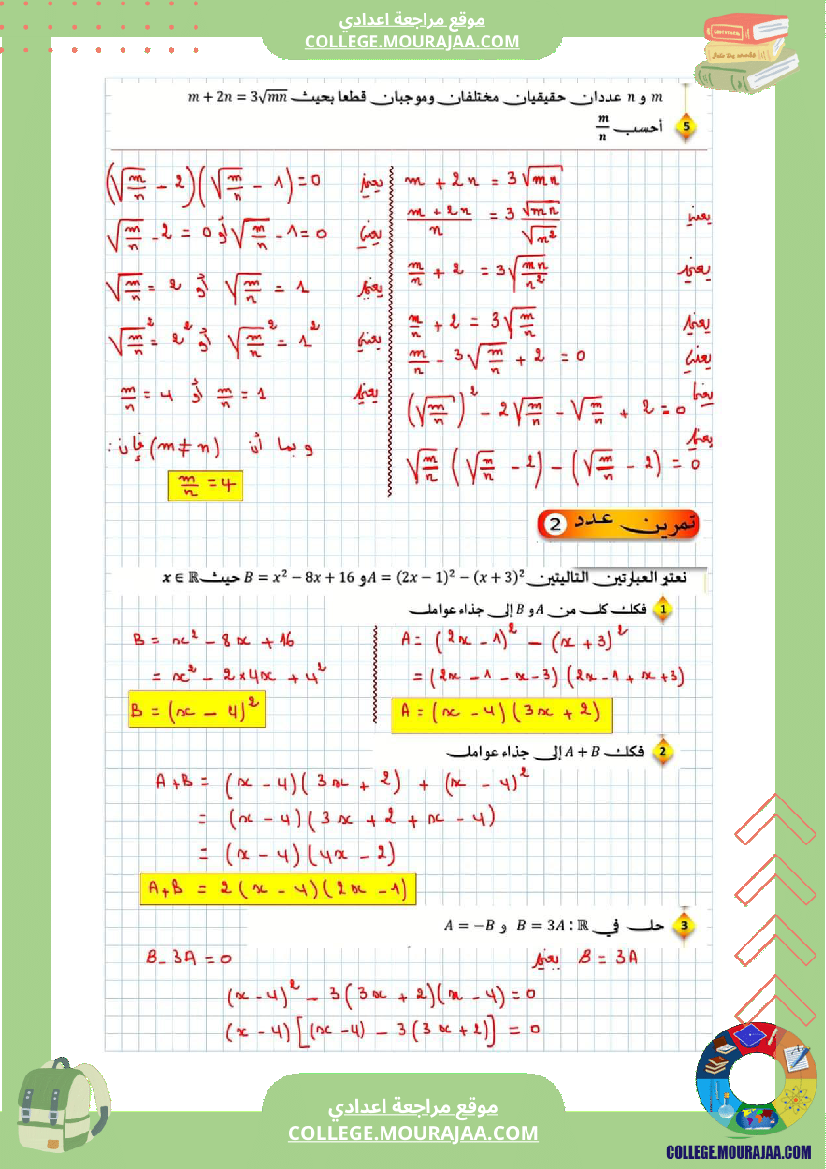 موقع مراجعة اعدادي
COLLEGE.MOURAJAA.COM
m و n عددان حقيقيان مختلفان وموجبان قطعا بحيث m + 2n = 3√mn
5 أحسب m/n
m + 2n = 3√mn
يعني (m + 2n)/n = 3 √mn/√n²
يعني m/n + 2 = 3√(mn/n²)
يعني m/n + 2 = 3√(m/n)
يعني m/n - 3√(m/n) + 2 = 0
يعني (√(m/n))² - 2√(m/n) - √(m/n) + 2 = 0
يعني √(m/n) (√(m/n) - 2) - (√(m/n) - 2) = 0
يعني (√(m/n) - 2)(√(m/n) - 1) = 0
يعني √(m/n) - 2 = 0 أو √(m/n) - 1 = 0
يعني √(m/n) = 2 أو √(m/n) = 1
يعني √(m/n)² = 2² أو √(m/n)² = 1²
يعني m/n = 4 أو m/n = 1
وبما أن (m ≠ n) فإن :
m/n = 4
تمرين عدد 2
نعتبر العبارتين التاليتين A = (2x − 1)² − (x + 3)² و B = x² − 8x + 16 حيث x ∈ ℝ
1 فكك كل من A و B إلى جذاء عوامل
A = (2x - 1)² - (x + 3)²
= (2x - 1 - x - 3)(2x - 1 + x + 3)
A = (x - 4)(3x + 2)
B = x² - 8x + 16
= x² - 2×4x + 4²
B = (x - 4)²
2 فكك A + B إلى جذاء عوامل
A+B = (x - 4)(3x + 2) + (x - 4)²
= (x - 4)(3x + 2 + x - 4)
= (x - 4)(4x - 2)
A+B = 2(x - 4)(2x - 1)
3 حل في ℝ : B = 3A و A = −B
B = 3A يعني B - 3A = 0
(x - 4)² - 3(3x + 2)(x - 4) = 0
(x - 4)[(x - 4) - 3(3x + 2)] = 0
موقع مراجعة اعدادي
COLLEGE.MOURAJAA.COM
COLLEGE.MOURAJAA.COM